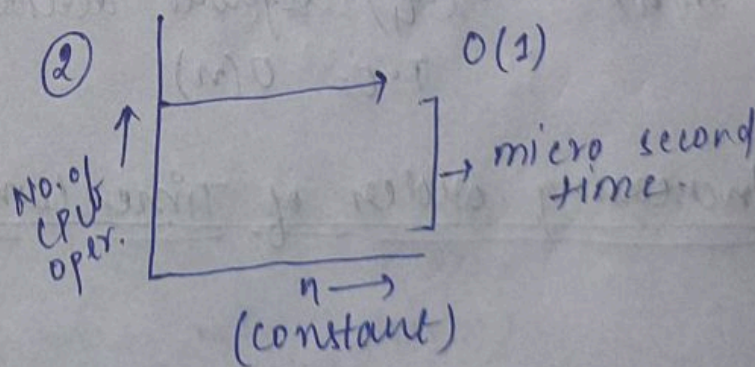 ②
O(1)
No. of
CPU
oper.
→ micro second
time.
n →
(constant)